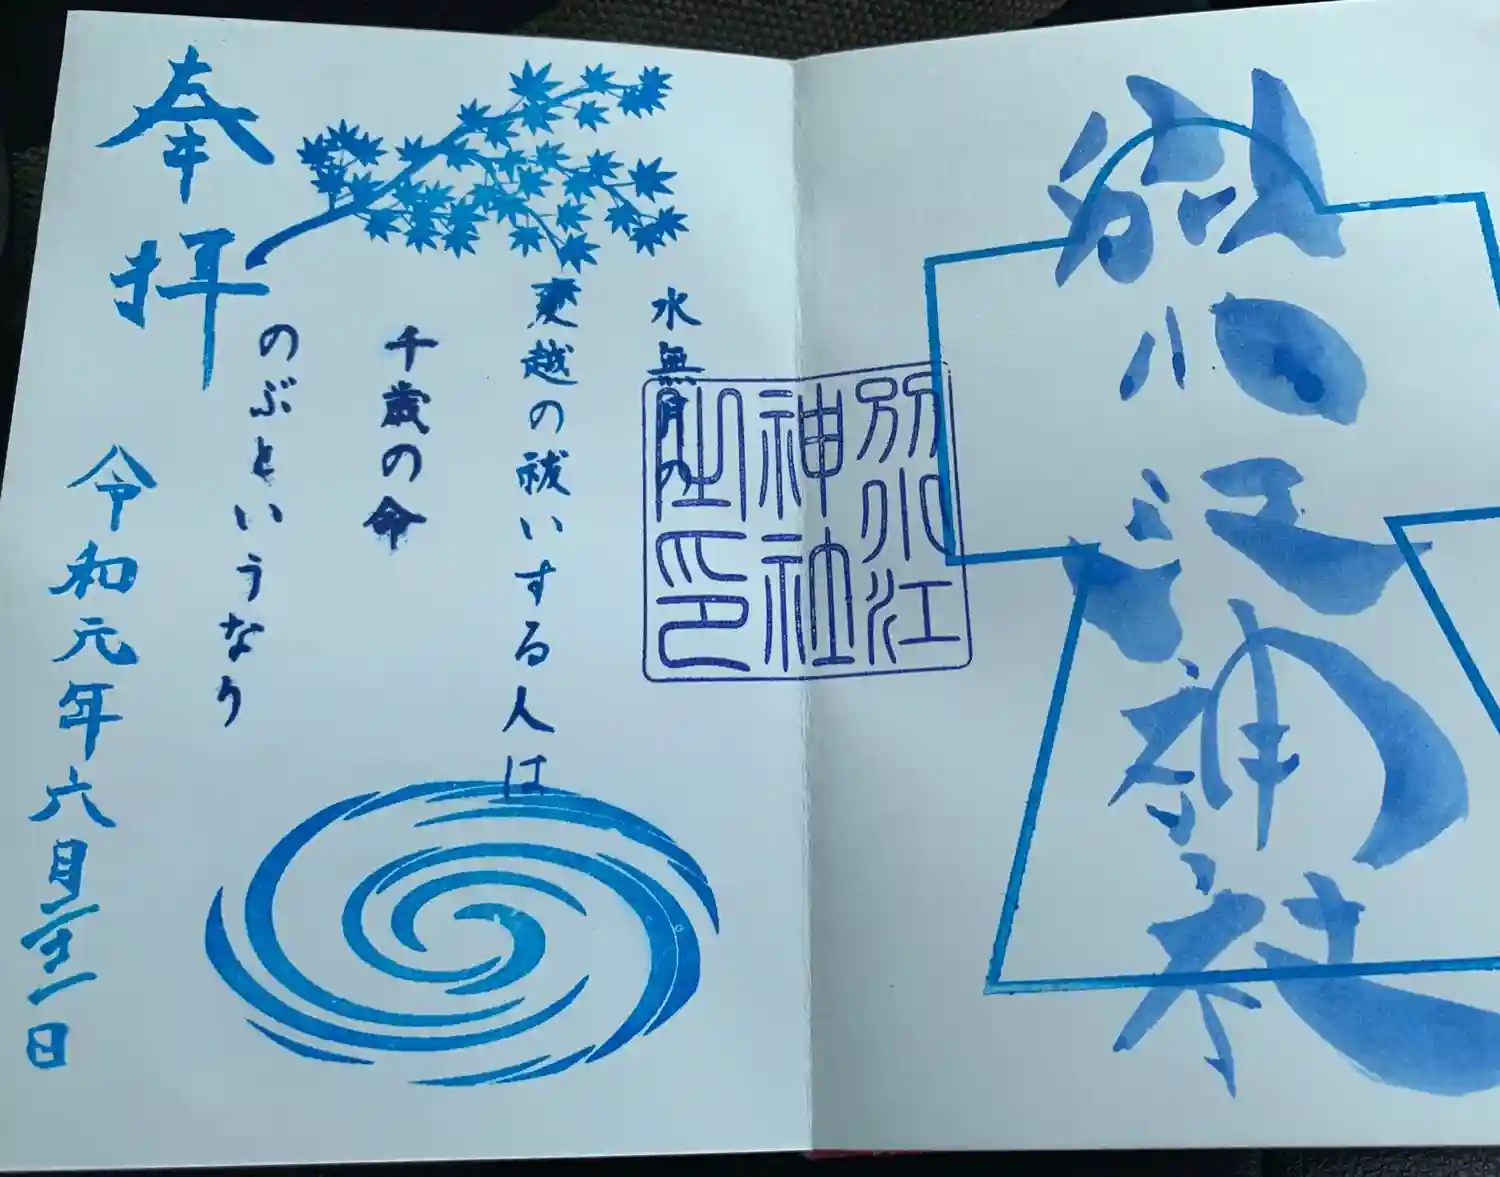 別小江神社
別小江
神社
之印
水無月の
夏越の祓いする人は
千歳の命
のぶというなり
奉拝
令和元年六月二十一日